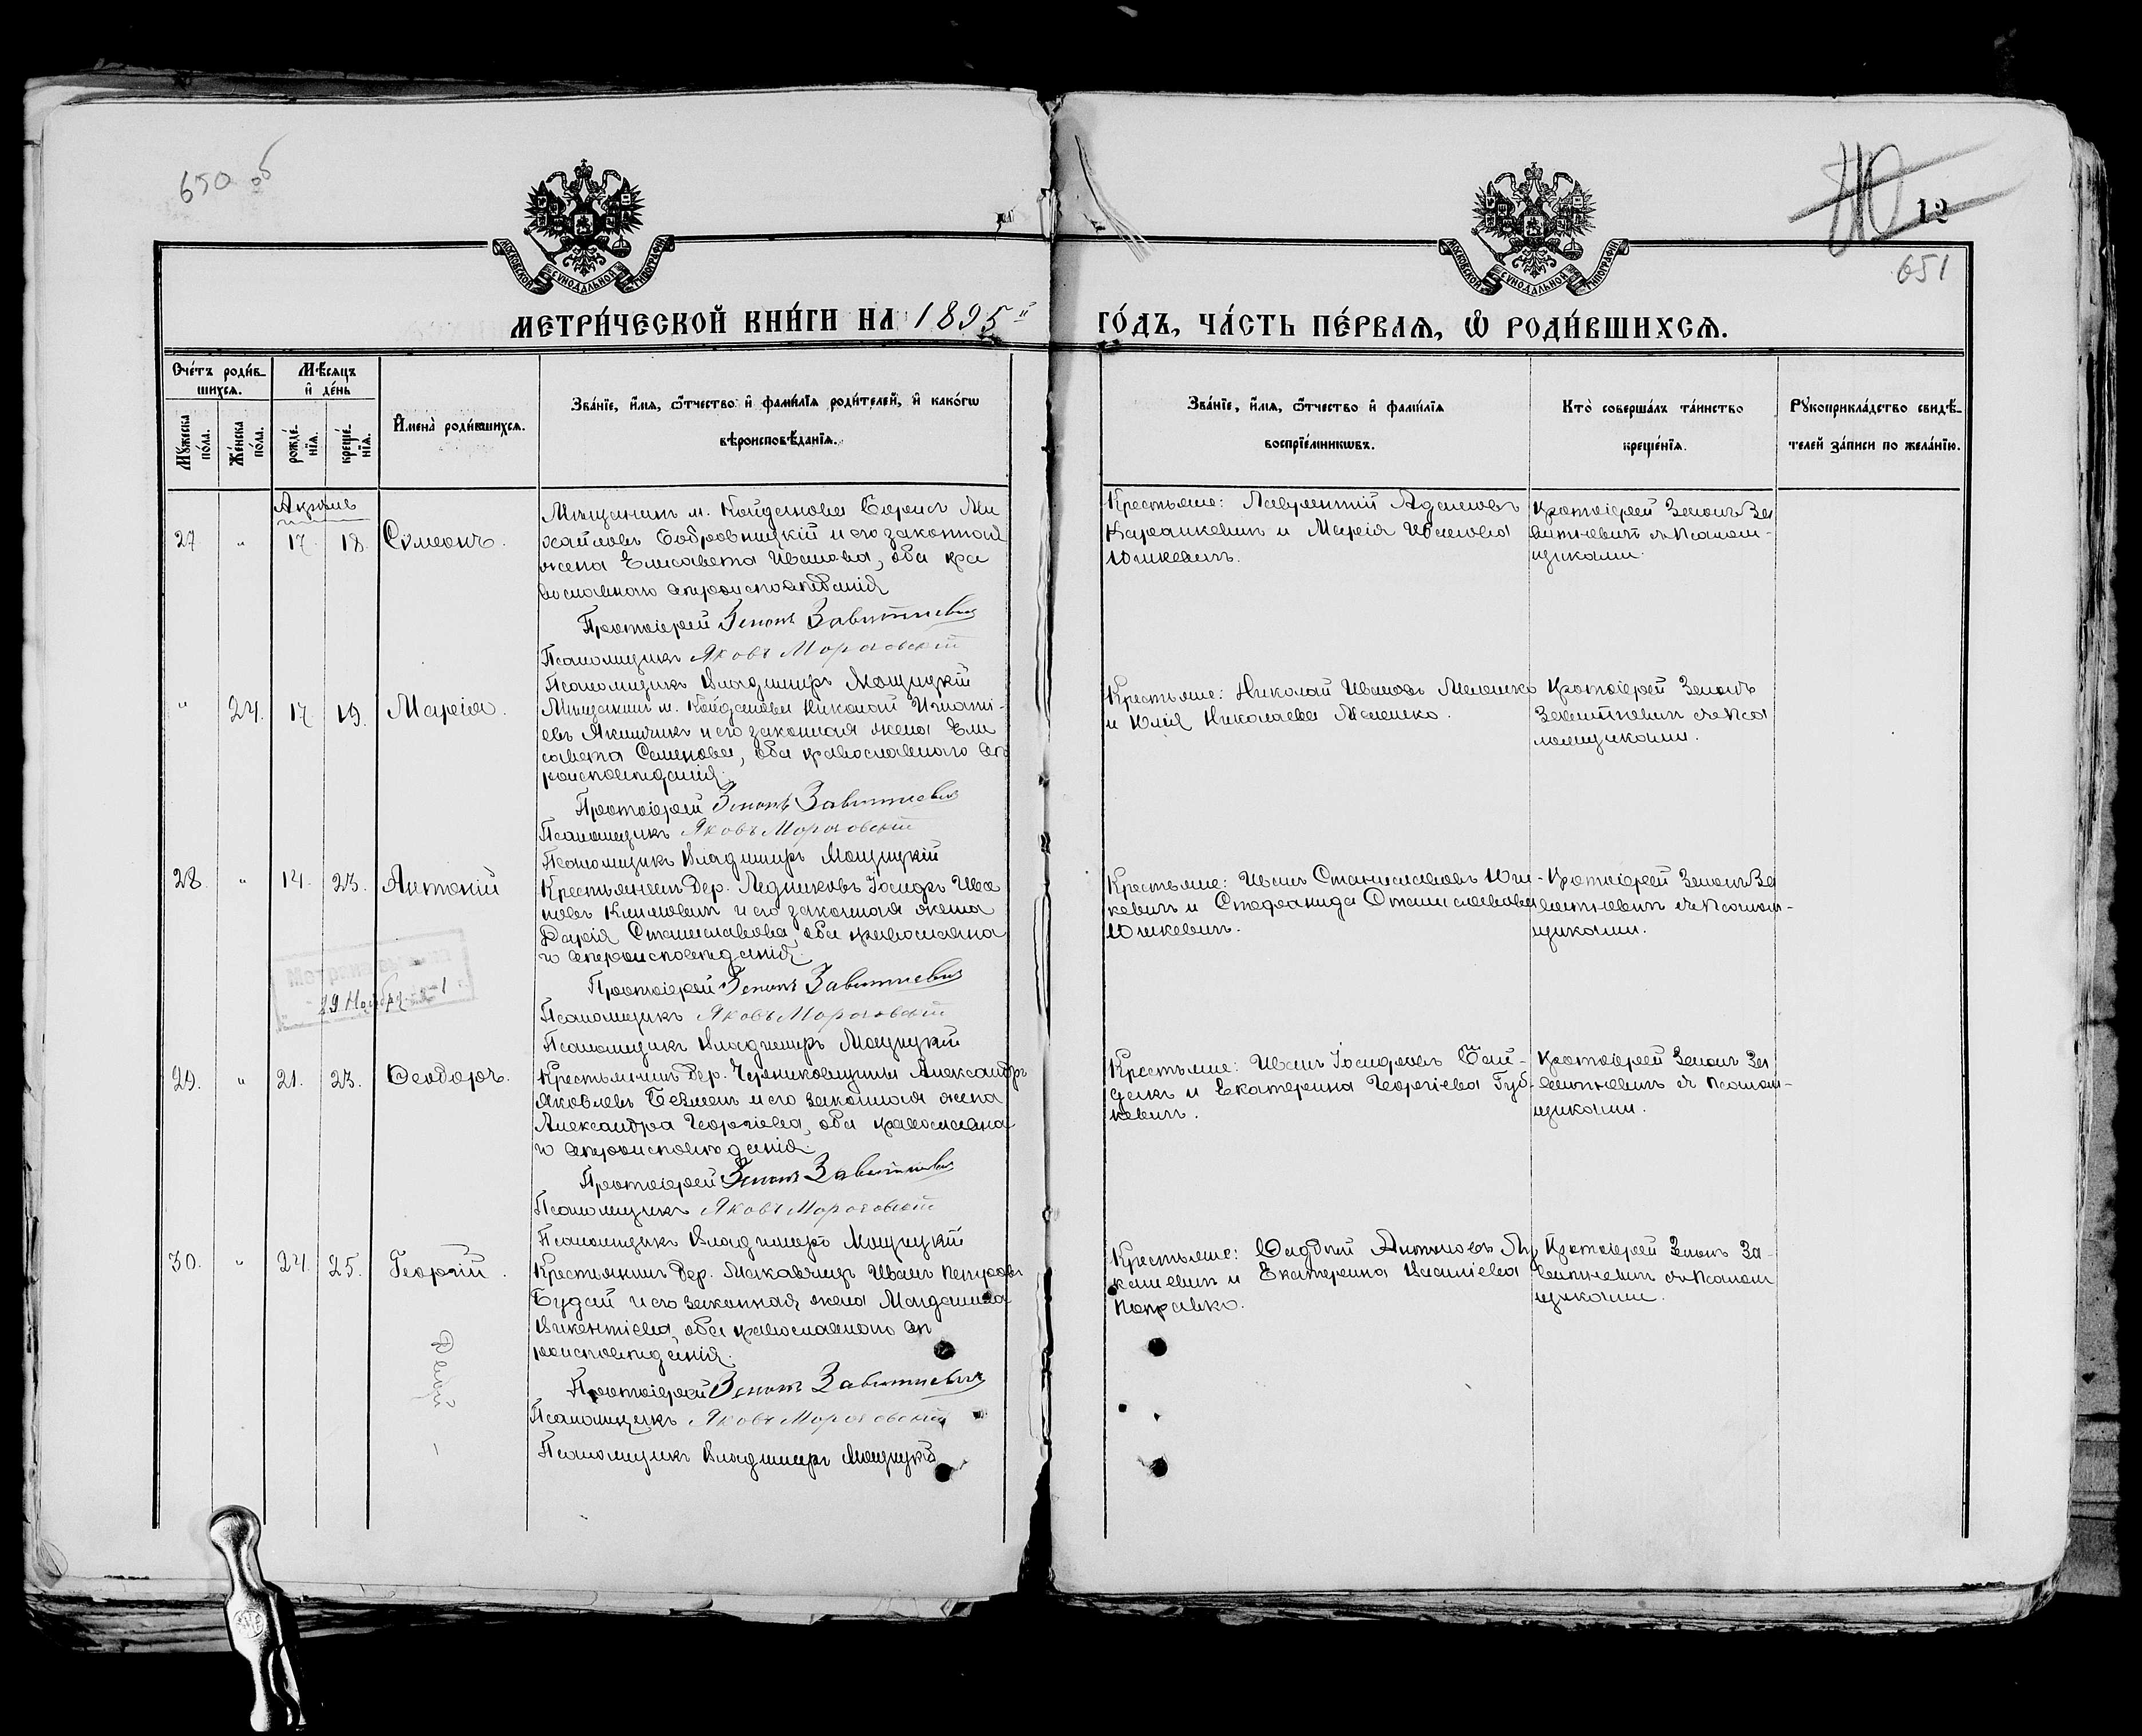 650 об
12
651
МОСКОВСКОЙ СѴНОДАЛЬНОЙ ТИПОГРАФІИ
МОСКОВСКОЙ СѴНОДАЛЬНОЙ ТИПОГРАФІИ
МЕТРИ́ЧЕСКОЙ КНИ́ГИ НА 1895й ГО́ДЪ, ЧА́СТЬ ПЕ́РВАѦ, Ѽ РОДИ́ВШИХСѦ.
Сче́тъ роди́в-
шихсѧ.
Мѣ́сѧцъ
и҆ де́нь
Мꙋ́жеска по́ла.
Же́нска по́ла.
рожде́-нїѧ.
креще́-нїѧ.
И҆мена̀ роди́вшихсѧ.
Зва́нїе, и҆́мѧ, ѻ҆́тчество и҆ фами́лїѧ роди́телей, и҆ како́гѡ
вѣроисповѣ́данїѧ.
Зва́нїе, и҆́мѧ, ѻ҆́тчество и҆ фами́лїѧ
воспрїе́мникѡвъ.
Кто̀ соверша́лъ та́инство
креще́нїѧ.
Рꙋкоприкла́дство свидѣ́-
телей за́писи по жела́нїю.
Апрѣль
27 " 17. 18. Сѵмеонъ.
Мѣщанинъ м. Койданова Борисъ Ми
хайловъ Бобровницкій и его законная
жена Елисавета Иванова, оба пра
вославнаго вѣроисповѣданія
Протоіерей Зенонъ Завитневичъ
Псаломщикъ Яковъ Мороховскій
Псаломщикъ Владимиръ Мощицкій
Крестьяне: Лаврентій Адамовъ
и Марія Иванова
Юшкевичъ.
Протоіерей Зенонъ За
витневичъ съ псалом-
щиками.
" 24. 17 19. Марія.
Мѣщанинъ м. Койданова Николай Игнаті-
евъ Якимчикъ и его законная жена Ели
савета Семенова, оба православнаго вѣ
роисповѣданія.
Протоіерей Зенонъ Завитневичъ
Псаломщикъ Яковъ Мороховскій
Псаломщикъ Владимиръ Мощицкій
Крестьяне: Николай Ивановъ Мелешко
и Юлія Николаева Мелешко.
Протоіерей Зенонъ
Завитневичъ съ пса
ломщиками.
28. " 14. 23. Антоній
Крестьянинъ дер. Ледниковъ Іосифъ Ива
новъ Климовичъ и его законная жена
Дарія Станиславова, оба православна
го вѣроисповѣданія.
Протоіерей Зенонъ Завитневичъ
Псаломщикъ Яковъ Мороховскій
Псаломщикъ Владимиръ Мощицкій
Крестьяне: Иванъ Станиславовъ Юш-
кевичъ и Стефанида Станиславова
Юшкевичъ.
Протоіерей Зенонъ За
витневичъ съ псалом-
щиками.
29. " 21. 23. Ѳеодоръ.
Крестьянинъ дер. Черниковщины Александръ
Яковлевъ Безменъ и его законная жена
Александра Георгіева, оба православна
го вѣроисповѣданія.
Протоіерей Зенонъ Завитневичъ
Псаломщикъ Яковъ Мороховскій
Псаломщикъ Владимиръ Мощицкій
Крестьяне: Иванъ Іосифовъ
и Екатерина Георгіева Губ-
кевичъ.
Протоіерей Зенонъ За
витневичъ съ псалом-
щиками.
30. " 24. 25. Георгій.
Крестьянинъ дер. Макавчицъ Иванъ Петровъ
Будай и его законная жена Магдалина
Викентіева, оба православнаго вѣ
роисповѣданія.
Протоіерей Зенонъ Завитневичъ
Псаломщикъ Яковъ Мороховскій
Псаломщикъ Владимиръ Мощицкій
Крестьяне: Фаддей Антоновъ Лу
кашевичъ и Екатерина Василіева
Поправко.
Протоіерей Зенонъ За-
витневичъ съ псалом
щиками.